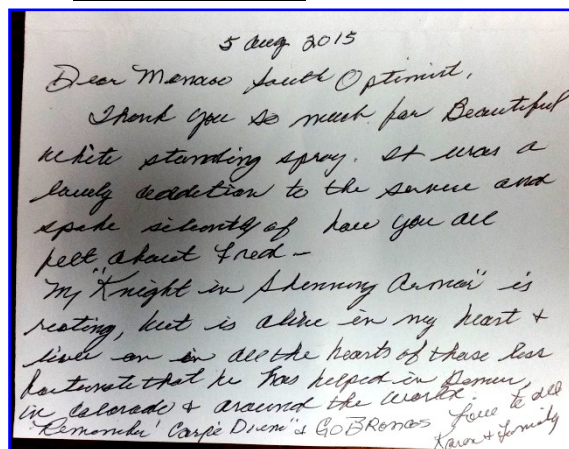 5 Aug 2015
Dear Monaco South Optimist,
Thank you so much for Beautiful
white standing spray. It was a
lovely addition to the service and
spoke silently of how you all
felt about Fred –
My "Knight in Shinning Armor" is
resting, but is alive in my heart +
lives on in all the hearts of those less
fortunate that he has helped in Denver,
in Colorado + around the world.
"Remember' Carpe Diem" & GO BRONCOS
Love to all
Karen + Family